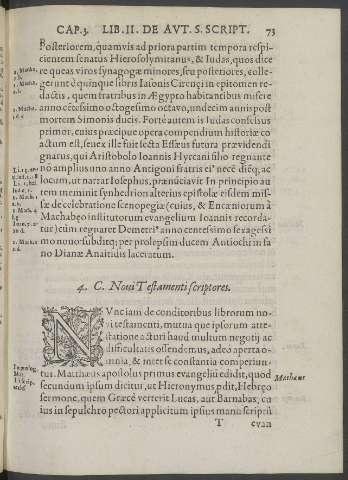 CAP.3. LIB. II. DE AVT. S. SCRIPT. 73
Posteriorem, quamvis ad priora partim tempora respi-
cientem senatus Hierosolymitanus, & Iudas, quos dice
re queas viros synagogæ minores, seu posteriores, colle-
gerunt è quinque libris Iasonis Cirenęi in epitomen re-
dactis, quem tratribus in Ægypto habitantibus misere
anno cētesimo octogesimo octavo, undecim annis post
mortem Simonis ducis. Forte autem is Iudas conscius
primor, cuius præcipue opera compendium historiæ co
actum est, senex ille fuit secta Essęus futura prævidendi
gnarus, qui Aristobolo Ioannis Hyrcani filio regnante
nó amplius uno anno Antigoni fratris ei' necē diēq; ac
locum, ut narrat Iosephus, prænūciavit In principio au
tem reminit synhedrion alterius epistolæ eisdem mis-
sæ de celebratione scenopegiæ (cuius, & Encæniorum à
Machabęo institutorum evangelium Ioannis recorda-
tur) cùm regnaret Demetri' anno centesimo sexagesi
mo nono subditq; per prolepsim ducem Antiochi in fa
no Dianæ Anaitidis laceratum.
4. C. Novi Testamenti scriptores.
NVnciani de conditoribus librorum no-
vi testamenti, mutua quę ipsorum atte-
statione acturi haud multum negotij ac
difficultatis offendemus, adeò aperta o-
mnia, & inter se constantia comperiun-
tur. Matthæus apostolus primus evangelii edidit, quod
secundum ipsum dicitur, ut Hieronymus pdit, Hebręo
sermone, quem Græcè verterit Lucas, aut Barnabas, cu
ius in sepulchro pectori applicitum ipsius manu scriptū
Matthæus
T evan